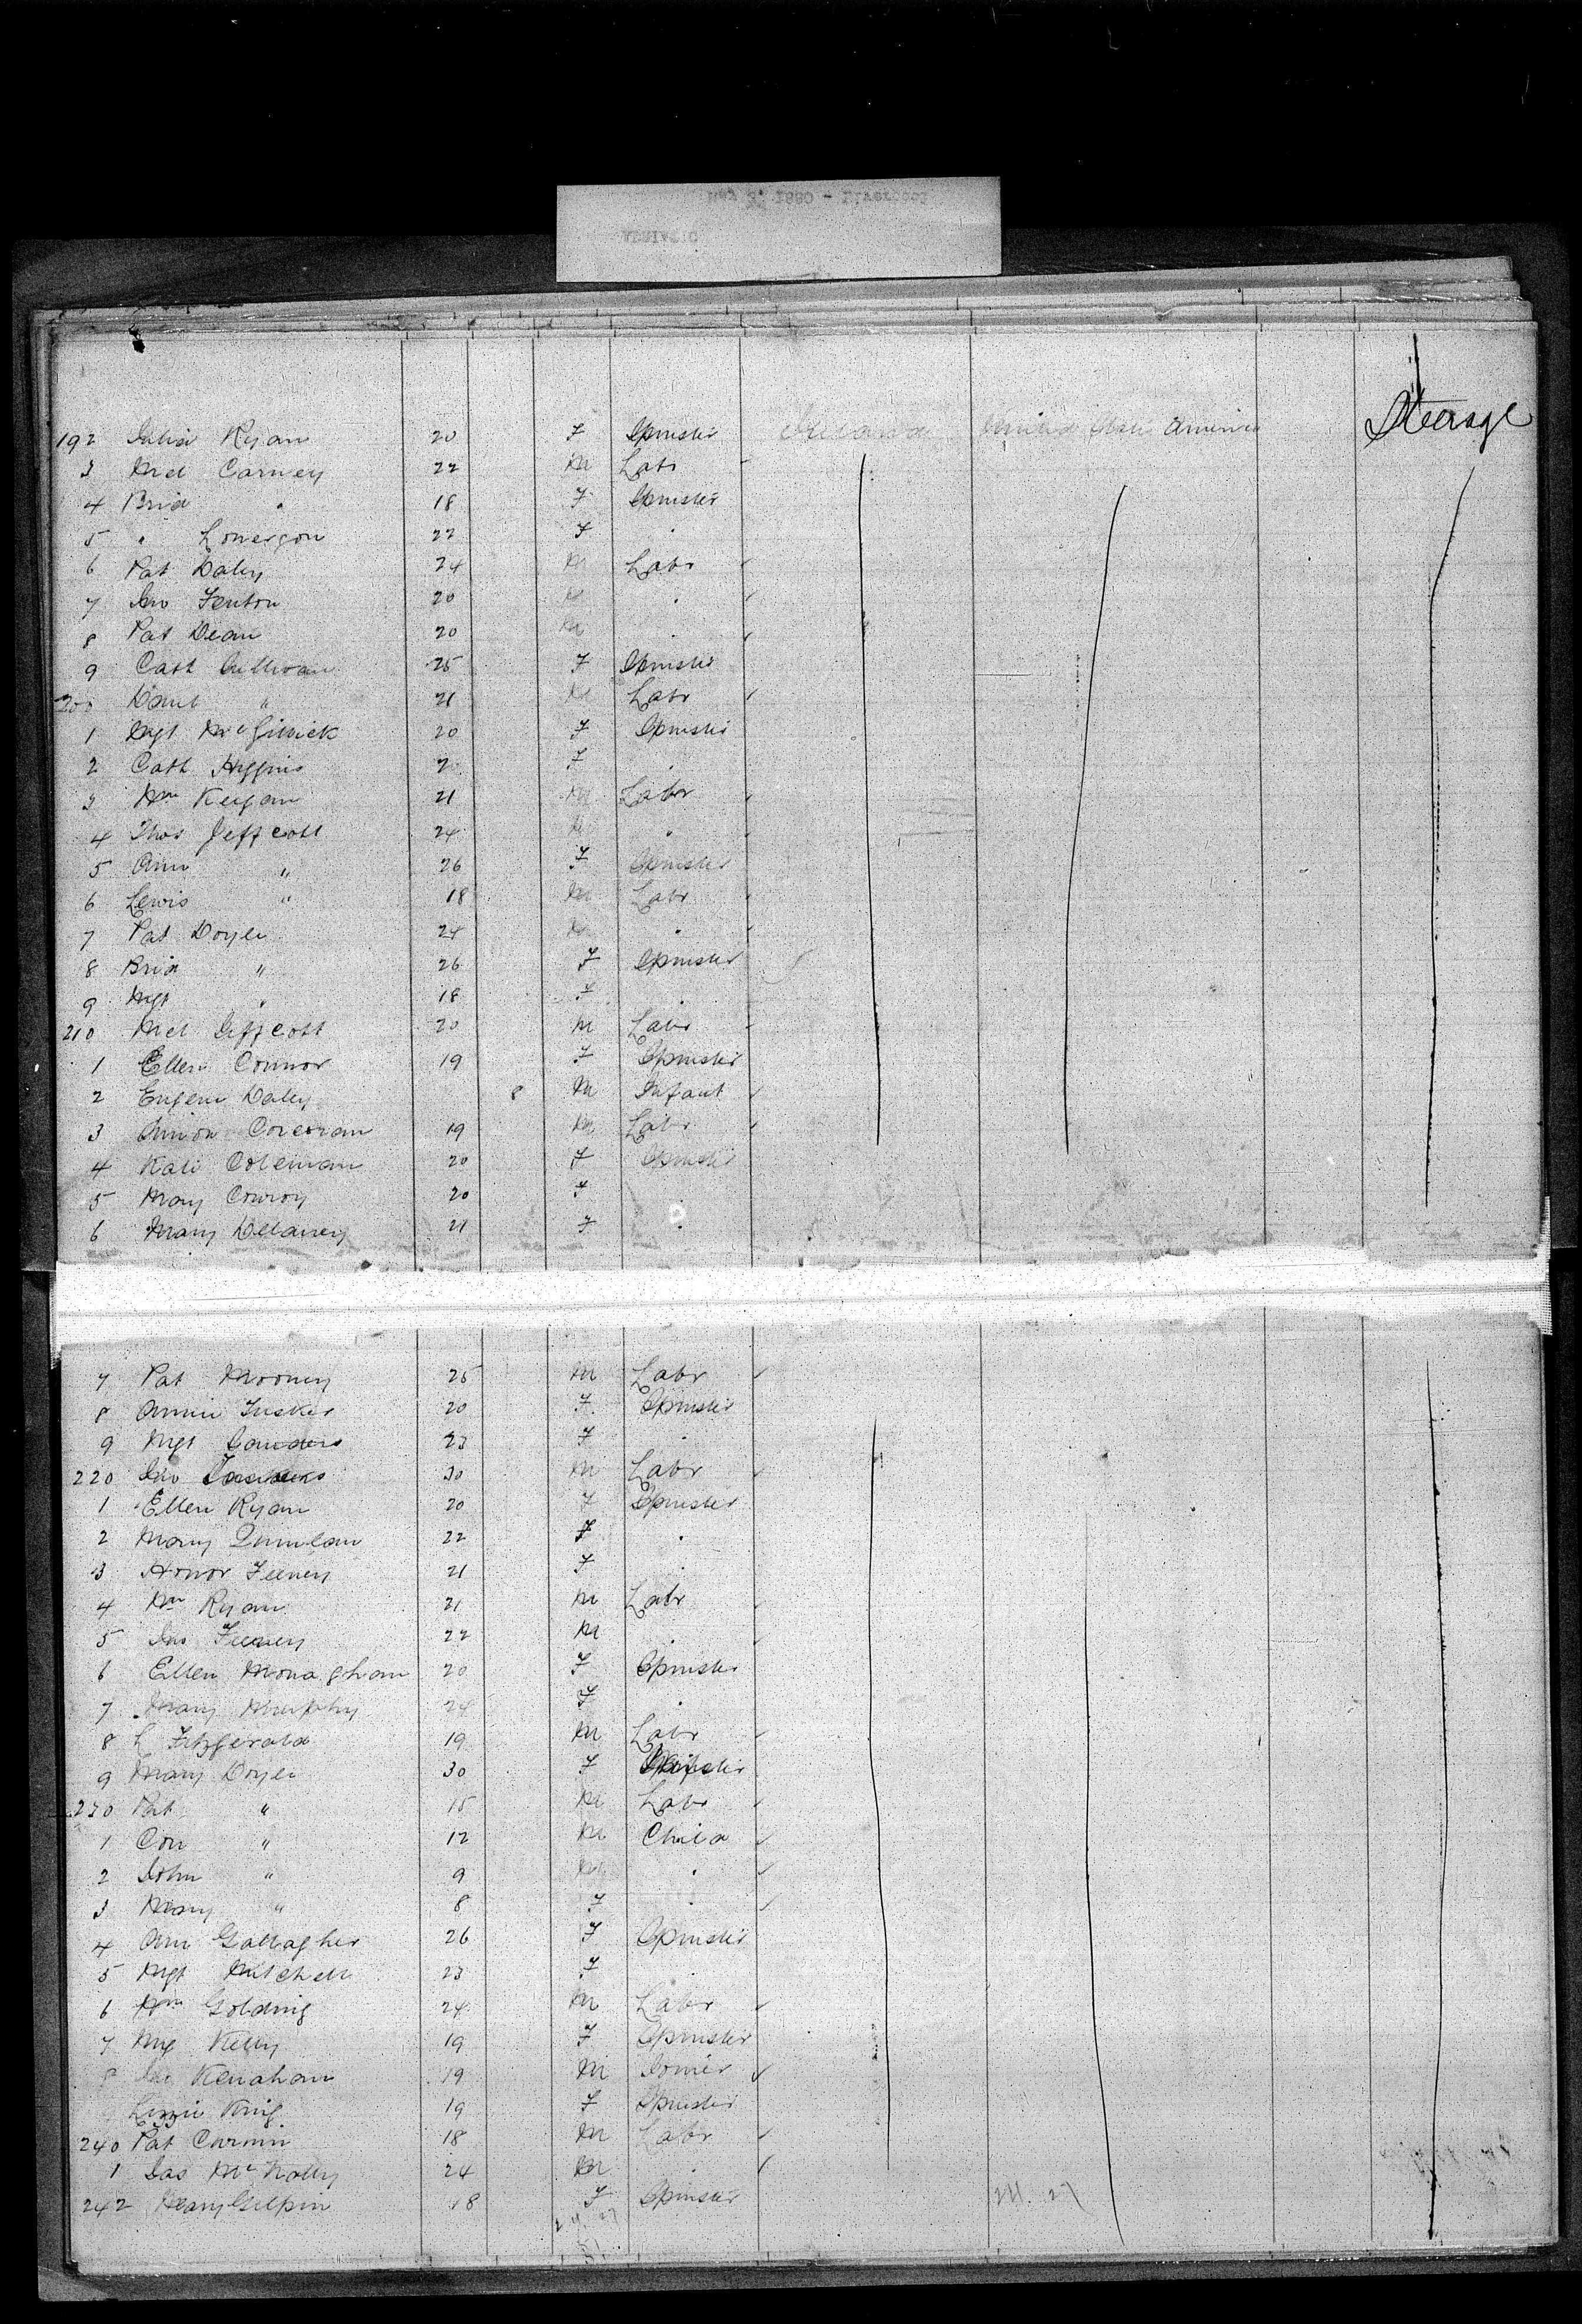 May 3, 1880 - Liverpool
192 Julia Ryan 20 F Spinster Ireland United States America Steerage
3 Mcl Carney 22 M Labr
4 Brid " 18 F Spinster
5 " Lonergon 22 F "
6 Pat Daley 24 M Labr
7 Jno Fenton 20 M "
8 Pat Dean 20 M "
9 Cath Sullivan 25 F Spinster
200 Danl " 21 M Labr
1 Mgt 20 F Spinster
2 Cath Higgins F "
3 Wm Keegan 21 M Labr
4 Thos Jeffcott 24 M "
5 Ann " 26 F Spinster
6 Lewis " 18 M Labr
7 Pat Doyle 24 M "
8 Brid " 26 F Spinster
9 Mgt " 18 F "
210 Mcl Jeffcott 20 M Labr
1 Ellen Connor 19 F Spinster
2 Eugene Daley 8 M Infant
3 Corcoran 19 M Labr
4 Kate Coleman 20 F Spinster
5 Mary Conroy 20 F "
6 Mary Delaney 21 F "
7 Pat Mooney 25 M Labr
8 Annie Tusker 20 F Spinster
9 Mgt 23 F "
220 Jno 30 M Labr
1 Ellen Ryan 20 F Spinster
2 Mary Quinlan 22 F "
3 Honor Feeney 21 F "
4 Wm Ryan 21 M Labr
5 Jno Feeney 22 M "
6 Ellen Monaghan 20 F Spinster
7 Mary Murphy 24 F "
8 L Fitzgerald 19 M Labr
9 Mary Doyle 30 F
230 Pat " 15 M Labr
1 Con " 12 M Child
2 John " 9 M "
3 Mary " 8 F "
4 Ann Gallagher 26 F Spinster
5 Mgt Mitchell 23 F "
6 Wm Golding 24 M Labr
7 Kelly 19 F Spinster
8 Kenahan 19 M
Lizzie King 19 F Spinster
240 Pat 18 M Labr
1 Jas McNally 24 M "
242 Mary Gilpin 18 F Spinster
24 27